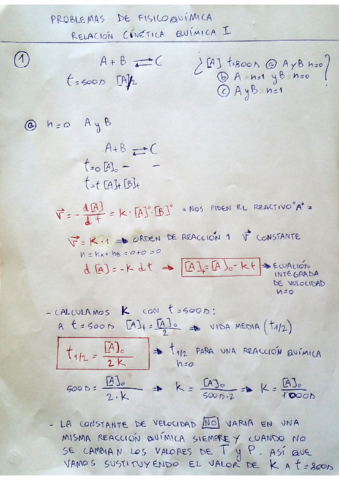 PROBLEMAS DE FISICOQUÍMICA
RELACIÓN CINÉTICA QUÍMICA I
① A + B ⇄ C
t = 500s [A]/2
¿[A] t=800s ⓐ A y B n=0 ?
ⓑ A n=1 y B n=0
ⓒ A y B n=1
ⓐ n=0 A y B
A + B ⇄ C
t=0 [A]₀ - -
t=t [A]t [B]t
V = - d[A]/dt = K · [A]⁰ [B]⁰ = NOS PIDEN EL REACTIVO "A" =
V = K · 1 ⇒ ORDEN DE REACCIÓN 1 V CONSTANTE
n = nA + nB = 0+0 = 0
d[A] = -K dt ⇒ [A]t = [A]₀ - Kt ⇒ ECUACIÓN
INTEGRADA
DE VELOCIDAD
n=0
- CALCULAMOS K CON t = 500s:
A t = 500s [A]t = [A]₀/2 ⇒ VIDA MEDIA (t1/2)
t1/2 = [A]₀/2K ⇒ t1/2 PARA UNA REACCIÓN QUÍMICA
n=0
500s = [A]₀/2·K ⇒ K = [A]₀/500s·2 ⇒ K = [A]₀/1000s
- LA CONSTANTE DE VELOCIDAD NO VARIA EN UNA
MISMA REACCIÓN QUÍMICA SIEMPRE Y CUANDO NO
SE CAMBIAN LOS VALORES DE T Y P. ASÍ QUE
VAMOS SUSTITUYENDO EL VALOR DE K A t = 800s